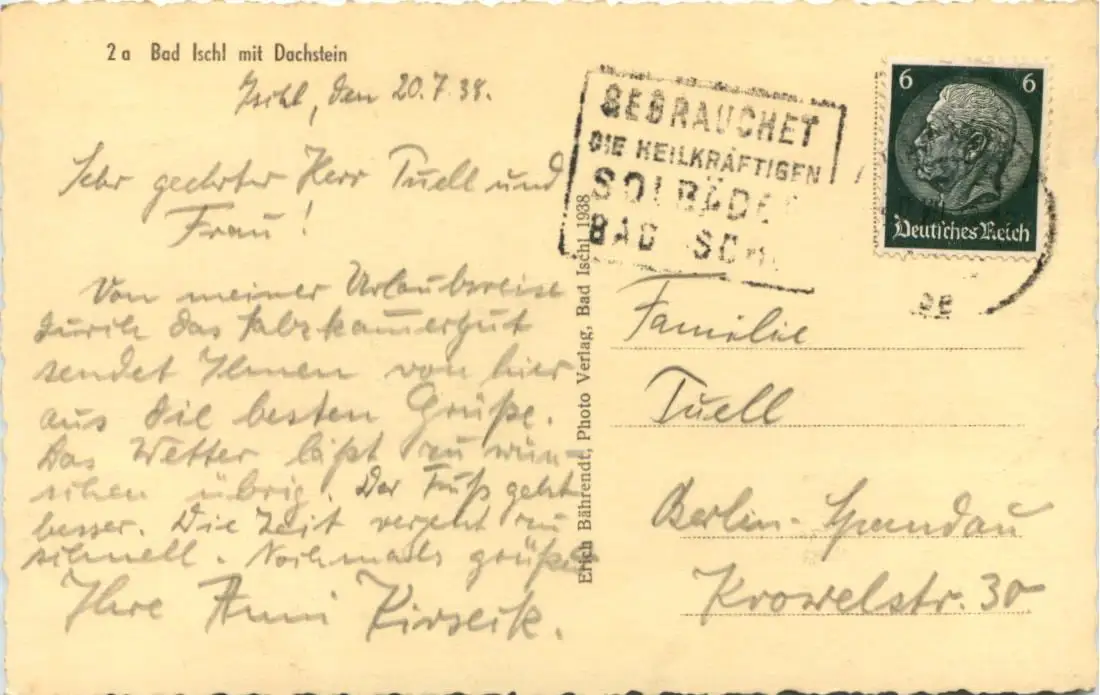 2a Bad Ischl mit Dachstein
Ischl, den 20.7.38.
Sehr geehrter Herr Tuell und
Frau!
Von meiner Urlaubsreise
durch das Salzkammergut
sendet Ihnen von hier
aus die besten Grüße.
Das Wetter läßt zu wün-
schen übrig. Der Fuß geht
besser. Die Zeit vergeht zu
schnell. Nochmals grüßt
Ihre Anni
Erich Bährendt, Photo Verlag, Bad Ischl 1938
GEBRAUCHET
DIE HEILKRÄFTIGEN
SOLBÄDE
BAD
6 6
Deutsches Reich
Familie
Tuell
Berlin-Spandau
Krowelstr. 30